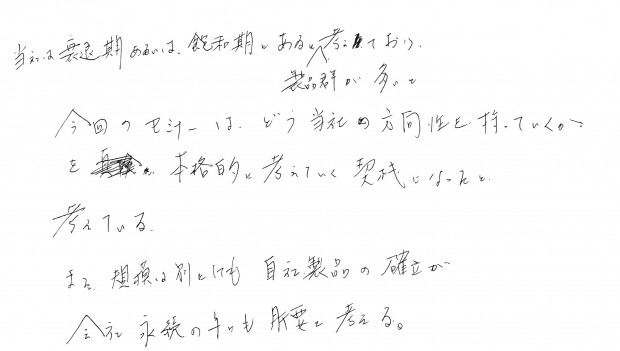 当社は衰退期あるいは、飽和期にあると考えており、
製品群が多いと
今回のセミナーは、どう当社の方向性を持っていくか
を 本格的に考えていく契機になったと
考えている。
また、規模は別としても自社製品の確立が
会社永続の为にも肝要と考える。